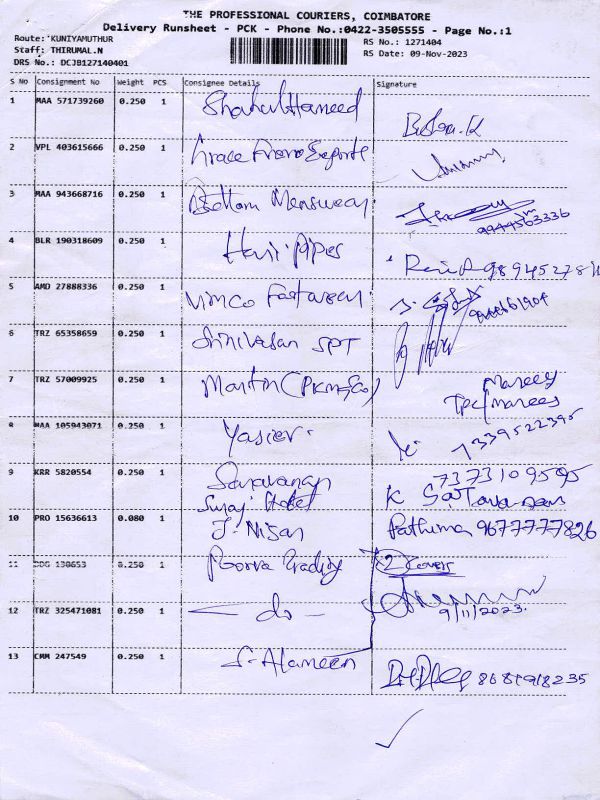 THE PROFESSIONAL COURIERS, COIMBATORE
Delivery Runsheet - PCK - Phone No.:0422-3505555 - Page No.:1
Route: 'KUNIYAMUTHUR
RS No.: 1271404
Staff: THIRUMAL.N
RS Date: 09-Nov-2023
DRS No.: DCJB127140401
S No Consignment No Weight PCS Consignee Details Signature
1 MAA 571739260 0.250 1 Shahul Hameed
2 VPL 403615666 0.250 1 Grace Exports
3 MAA 943668716 0.250 1 Bottom Menswear
9944563336
4 BLR 190318609 0.250 1 Hari Pipes
5 AMD 27888336 0.250 1 Vimco
6 TRZ 65358659 0.250 1 Srinivasan SPT
7 TRZ 57009925 0.250 1 Martin
8 MAA 105943071 0.250 1 Yasier. 7339522395
9 KRR 5820554 0.250 1 Saravanan 7373109595
Suraj Hotel K
10 PRO 15636613 0.080 1 J. Nisan Pathima 9677777826
11 0.250 1 Poorva Trading 2 Covers
12 TRZ 325471081 0.250 1 - do - 9/11/2023.
13 CMM 247549 0.250 1 S. Alameen